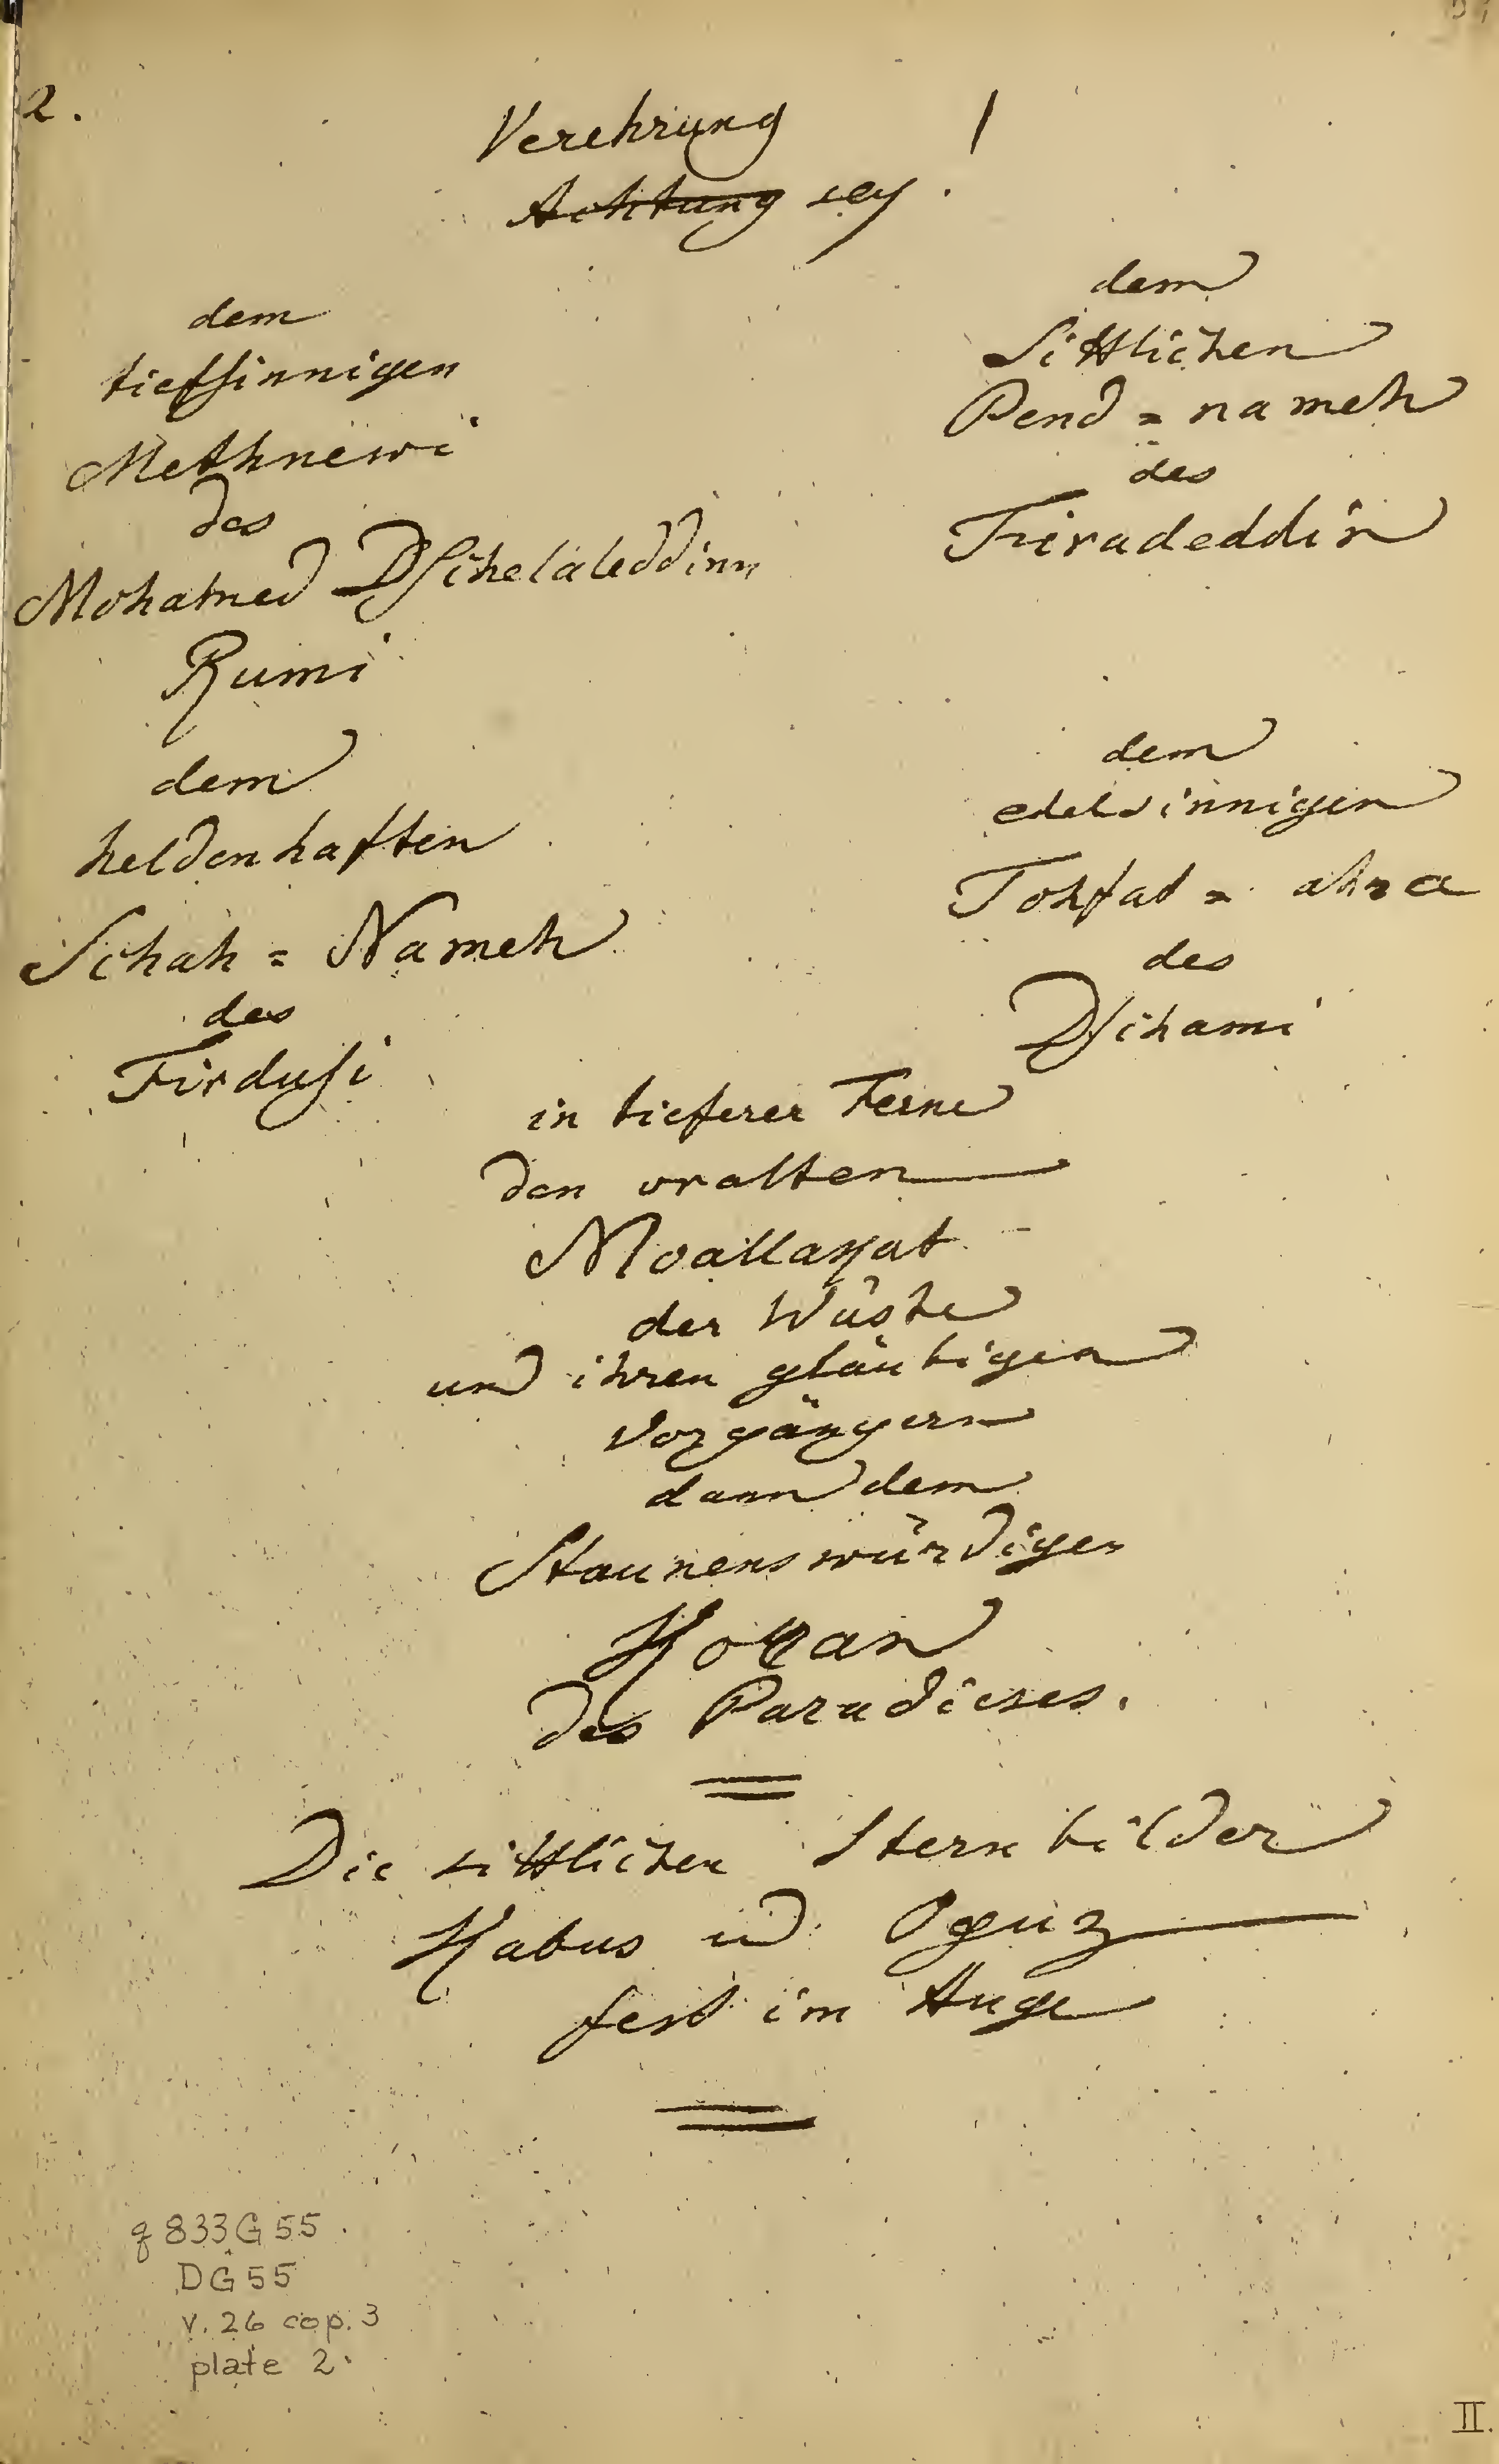 2.
Verehrung !
Achtung sey .
dem
tiefsinnigen
Methnewi
des
Mohamed Dschelaleddinn
Rumi
dem
heldenhaften
Schah = Nameh
des
Firdusi
dem
Sittlichen
Pend = nameh
des
Firadeddin
dem
edelsinnigen
Tohfat =
des
Dschami
in tieferer Ferne
den uralten
Moallaqat
der Wüste
und ihren gläubigen
Vorgängern
dann dem
Staunenswürdigen
Koran
des Paradieses.
Die sittlichen Sternbilder
Kabus ud Oguz
fest im Auge
q833G55
DG55
v. 26 cop. 3
plate 2
II.